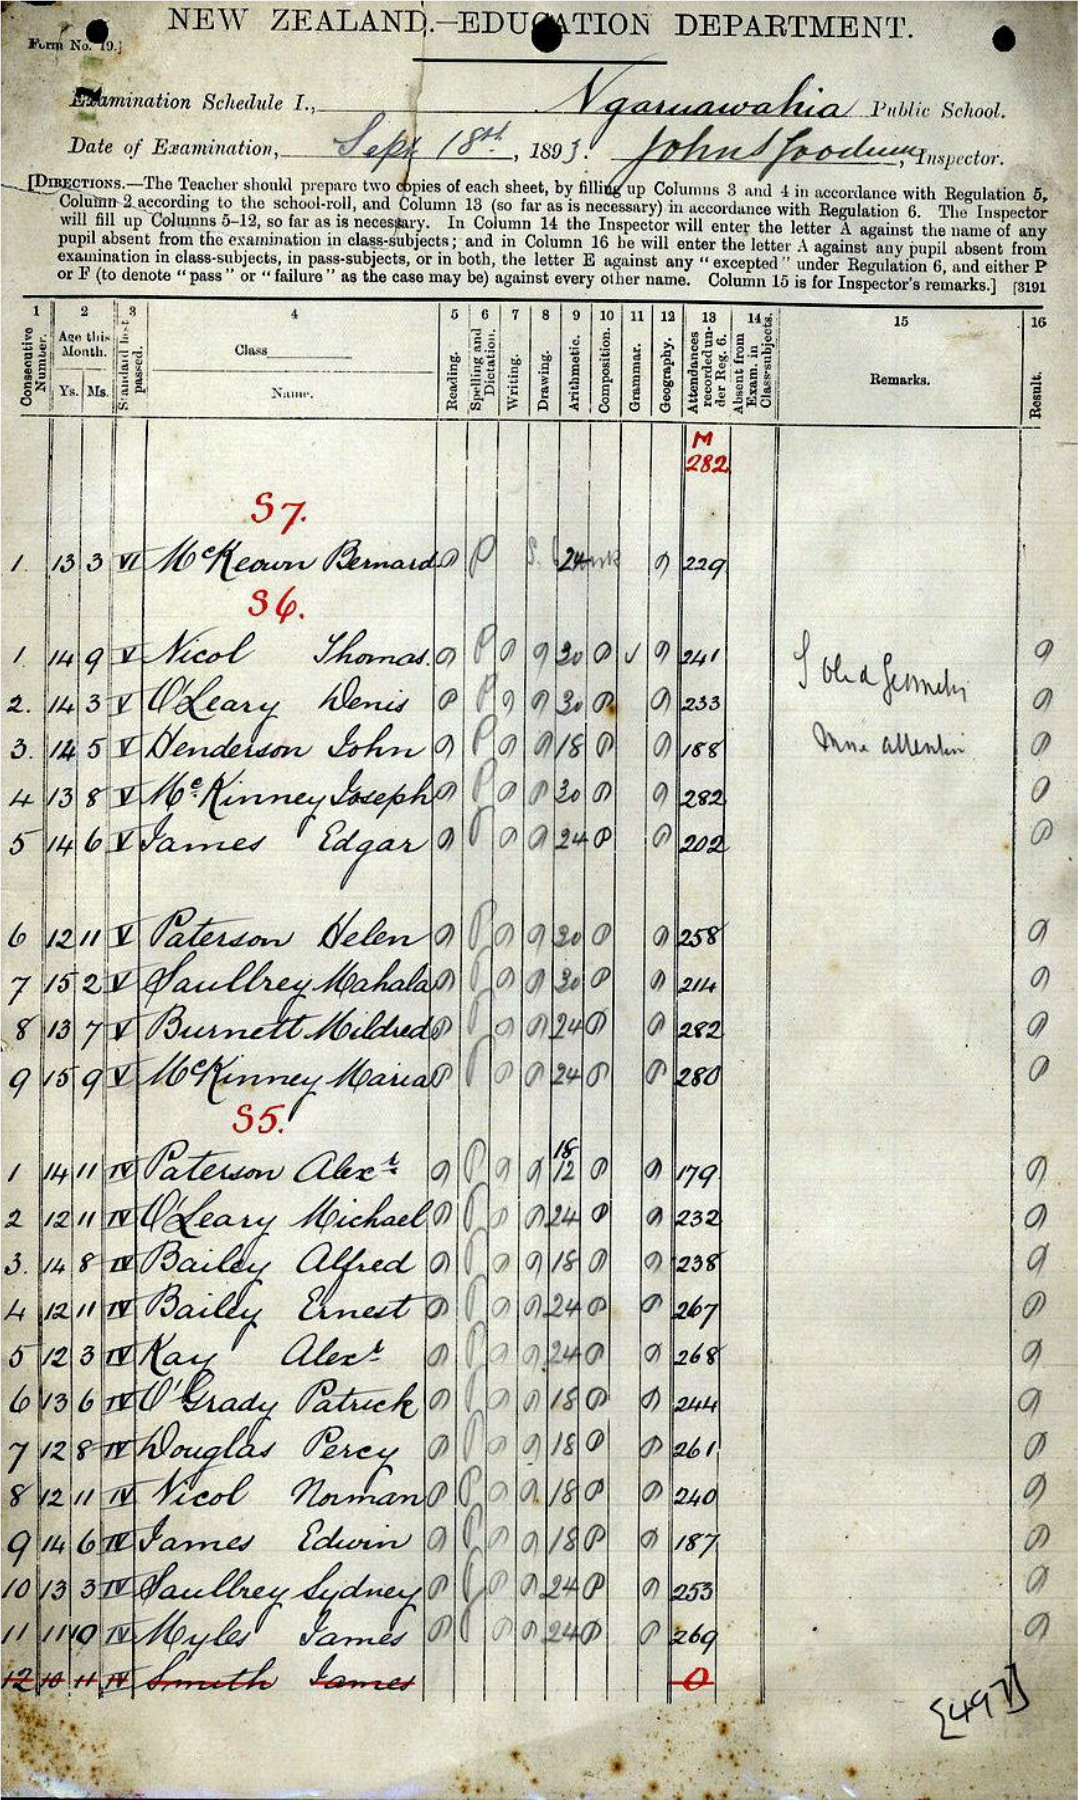 NEW ZEALAND.—EDUCATION DEPARTMENT.
Form No. 19.]
Examination Schedule I., Ngaruawahia Public School.
Date of Examination, Sept 18th, 1893. John S Goodwin, Inspector.
[DIRECTIONS.—The Teacher should prepare two copies of each sheet, by filling up Columns 3 and 4 in accordance with Regulation 5,
Column 2 according to the school-roll, and Column 13 (so far as is necessary) in accordance with Regulation 6. The Inspector
will fill up Columns 5–12, so far as is necessary. In Column 14 the Inspector will enter the letter A against the name of any
pupil absent from the examination in class-subjects; and in Column 16 he will enter the letter A against any pupil absent from
examination in class-subjects, in pass-subjects, or in both, the letter E against any "excepted" under Regulation 6, and either P
or F (to denote "pass" or "failure" as the case may be) against every other name. Column 15 is for Inspector's remarks.] [3191
1 2 3 4 5 6 7 8 9 10 11 12 13 14 15 16
Consecutive Number. Age this Month. Ys. Ms. Standard last passed. Class Name. Reading. Spelling and Dictation. Writing. Drawing. Arithmetic. Composition. Grammar. Geography. Attendances recorded under Reg. 6. Absent from Exam. in Class-subjects. Remarks. Result.
M
282
S7.
1. 13 3 VI McKeown Bernard P P 24 P 229
S6.
1. 14 9 V Nicol Thomas. P P P P 30 P ✓ P 241 P
2. 14 3 V O'Leary Denis P P P P 30 P P 233 Geometry P
3. 14 5 V Henderson John P P P P 18 P P 188 More attention P
4 13 8 V McKinney Joseph P P P P 30 P P 282 P
5 14 6 V James Edgar P P P P 24 P P 202 P
6 12 11 V Paterson Helen P P P P 30 P P 258 P
7 15 2 V Saullbrey Mahala P P P P 30 P P 214 P
8 13 7 V Burnett Mildred P P P P 24 P P 282 P
9 15 9 V McKinney Maria P P P P 24 P P 280 P
S5.
1 14 11 IV Paterson Alexr P P P P 18 12 P P 179 P
2 12 11 IV O'Leary Michael P P P P 24 P P 232 P
3. 14 8 IV Bailey Alfred P P P P 18 P P 238 P
4 12 11 IV Bailey Ernest P P P P 24 P P 267 P
5 12 3 IV Kay Alexr P P P P 24 P P 268 P
6 13 6 IV O'Grady Patrick P P P P 18 P P 244 P
7 12 8 IV Douglas Percy P P P P 18 P P 261 P
8 12 11 IV Nicol Norman P P P P 18 P P 240 P
9 14 6 IV James Edwin P P P P 18 P P 187 P
10 13 3 IV Saullbrey Sydney P P P P 24 P P 253 P
11 11 10 IV Myles James P P P P 24 P P 269 P
12 10 11 IV Smith James 0
[497]